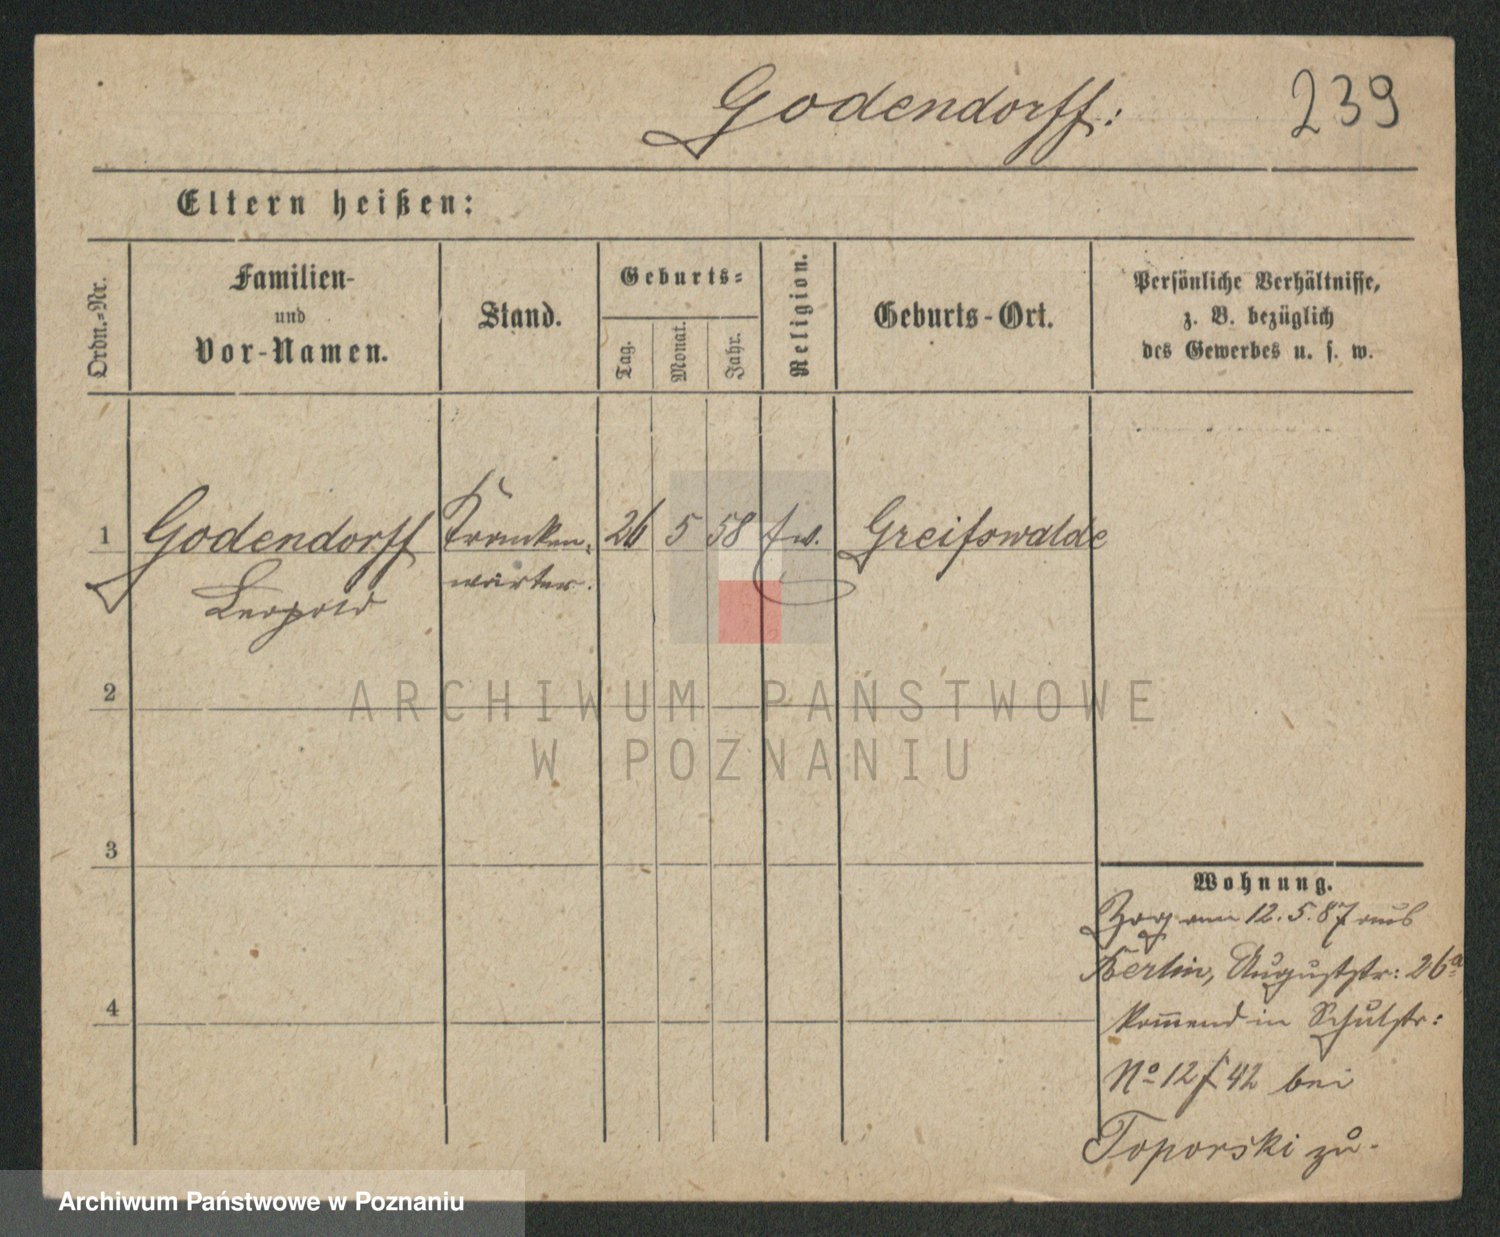 Godendorff:
239
Eltern heißen:
Ordn.-Nr.
Familien-
und
Vor-Namen.
Stand.
Geburts-
Tag.
Monat.
Jahr.
Religion.
Geburts-Ort.
Persönliche Verhältnisse,
z. B. bezüglich
des Gewerbes u. s. w.
1
Godendorff
Leopold
Kranken-
wärter.
26
5
58
Greifswalde
2
ARCHIWUM PAŃSTWOWE
W POZNANIU
3
4
Wohnung.
Zog am 12.5.87 aus
Berlin, Auguststr: 26a
kom̄end in Schulstr:
No 12/42 bei
Toporski zu.
Archiwum Państwowe w Poznaniu